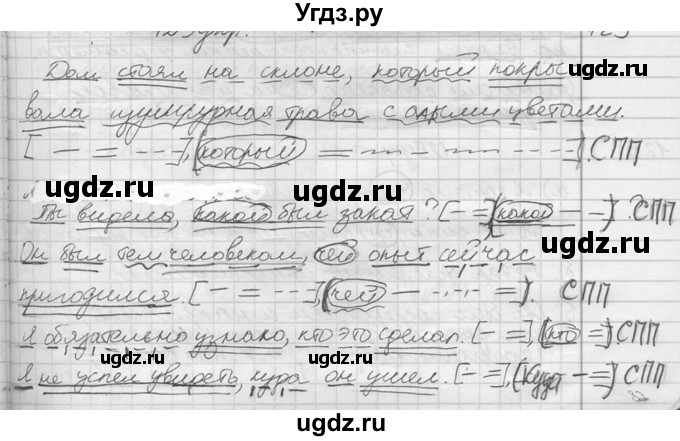 Угдз.ру
123 упр.
Дом стоял на склоне, который покры
вала изумрудная трава с алыми цветами.
[— = –·–], (который = ~~~ — ~~~ –––). СПП
Ты видела, какой был закат? [— =], (какой — =)? СПП
Он был тем человеком, чей опыт сейчас
пригодился. [— = –––], (чей — –·–·– =). СПП
Я обязательно узнаю, кто это сделал. [— =], (кто =). СПП
Я не успел увидеть, куда он ушел. [— =], (куда — =). СПП
ugdz.ru
ugdz.ru
ugdz.ru
ugdz.ru
ugdz.ru
ugdz.ru
ugdz.ru
ugdz.ru
Угдз.ру